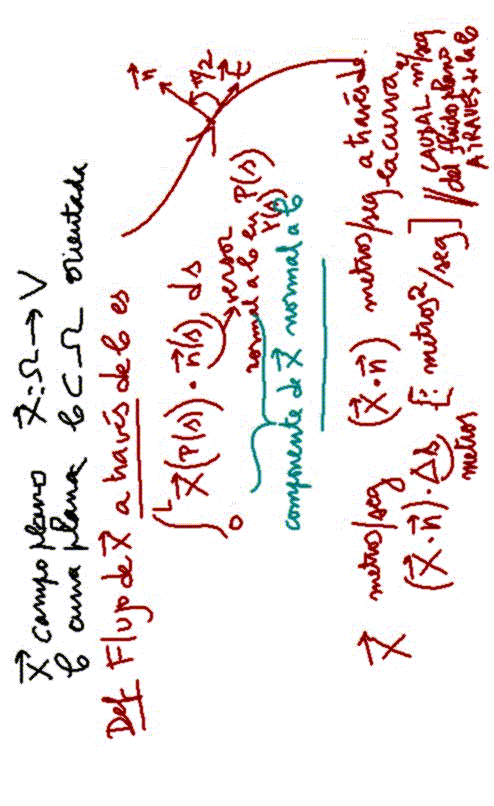 X⃗ campo plano X⃗: Ω → V
𝒞 curva plana 𝒞 ⊂ Ω orientada
Def Flujo de X⃗ a través de 𝒞 es
∫₀ᴸ X⃗(P(s)) · n⃗(s) ds
versor
normal a 𝒞 en P(s)
γ(s)
componente de X⃗ normal a 𝒞
n⃗
π/2
t⃗
X⃗ metros/seg (X⃗ · n⃗) metros/seg a través de
la curva
(X⃗ · n⃗) · Δs [: metros²/seg] // CAUDAL m²/seg
metros
del fluido plano
A TRAVÉS de la 𝒞